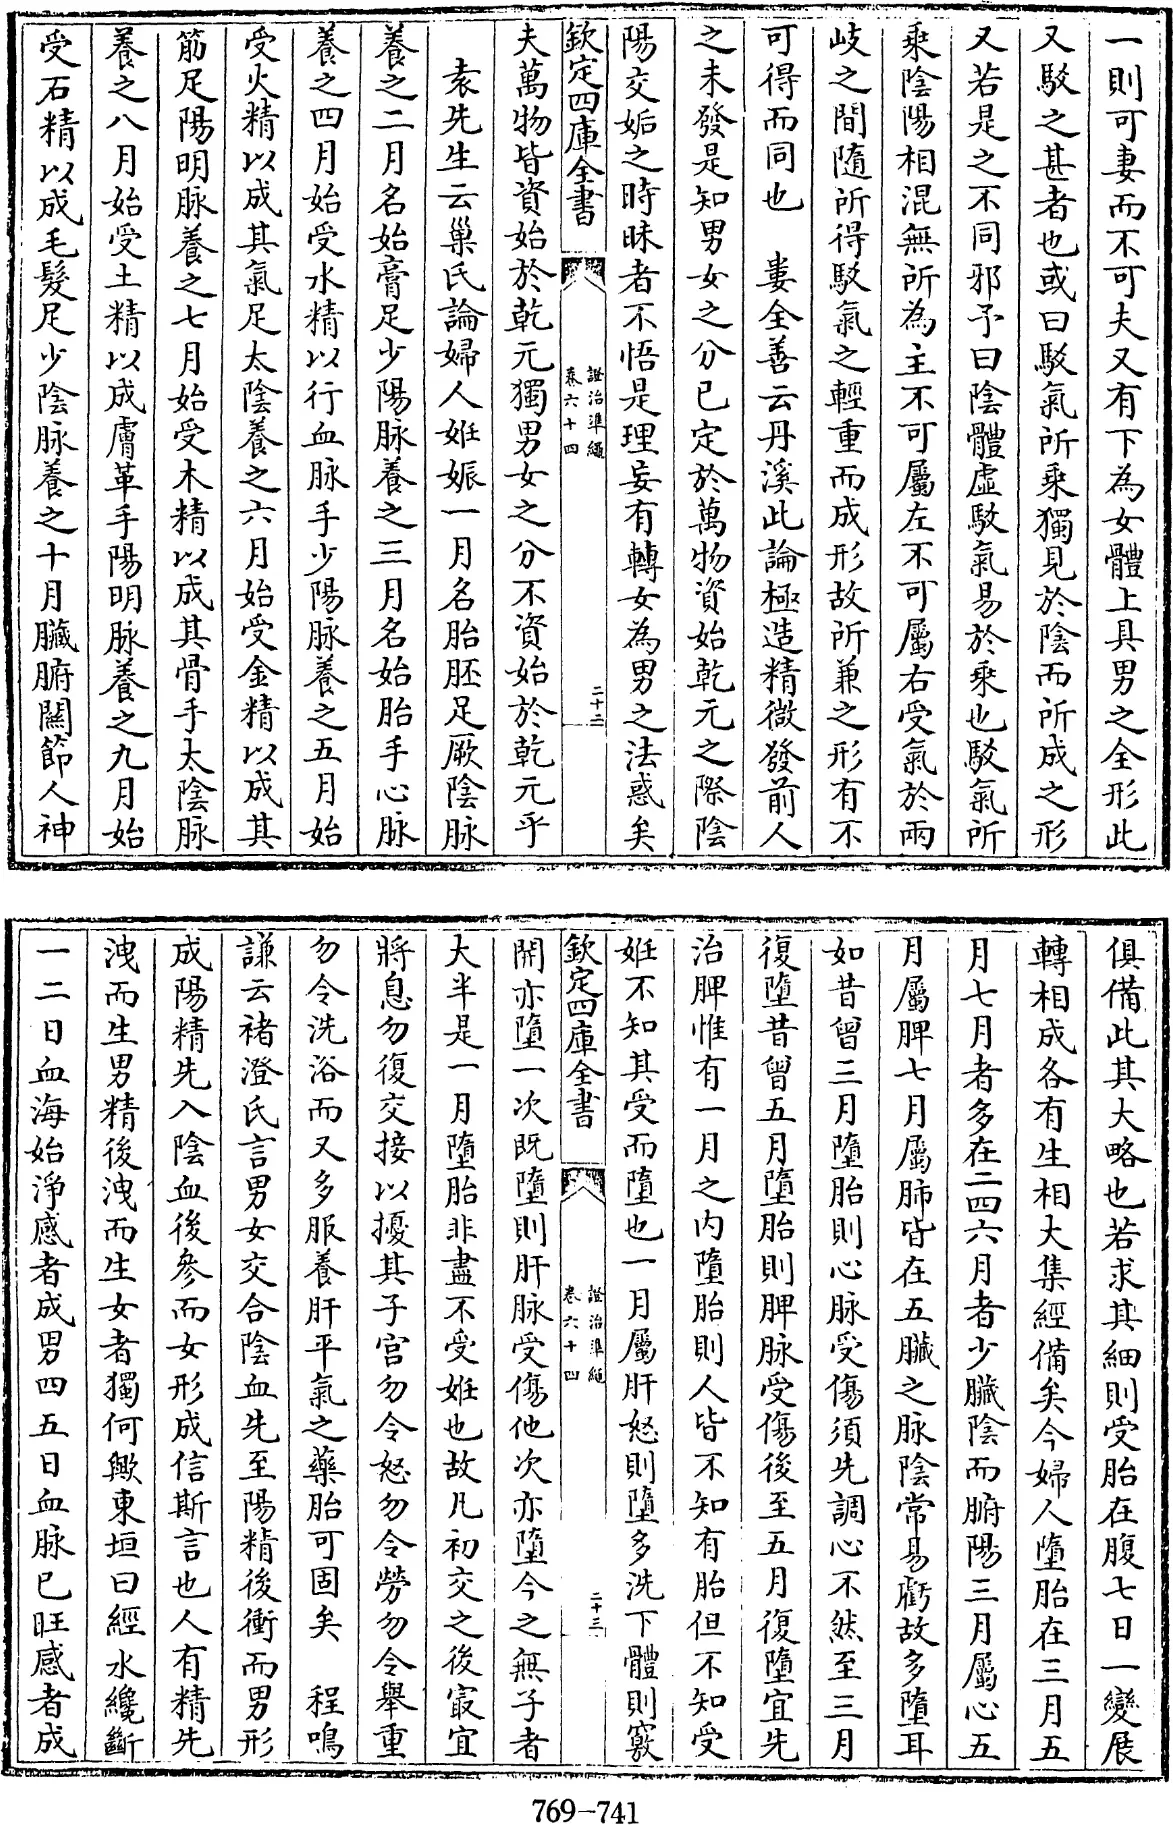 一則可妻而不可夫又有下為女體上具男之全形此
又駁之甚者也或曰駁氣所乘獨見於陰而所成之形
又若是之不同邪予曰陰體虛駁氣易於乘也駁氣所
乘陰陽相混無所為主不可屬左不可屬右受氣於兩
岐之間隨所得駁氣之輕重而成形故所兼之形有不
可得而同也　婁全善云丹溪此論極造精微發前人
之未發是知男女之分已定於萬物資始乾元之際陰
陽交姤之時昧者不悟是理妄有轉女為男之法惑矣
欽定四庫全書
證治準繩
卷六十四
二十二
夫萬物皆資始於乾元獨男女之分不資始於乾元乎
袁先生云巢氏論婦人姙娠一月名胎胚足厥陰脉
養之二月名始膏足少陽脉養之三月名始胎手心脉
養之四月始受水精以行血脉手少陽脉養之五月始
受火精以成其氣足太陰養之六月始受金精以成其
筋足陽明脉養之七月始受木精以成其骨手太陰脉
養之八月始受土精以成膚革手陽明脉養之九月始
受石精以成毛髮足少陰脉養之十月臟腑闗節人神
俱備此其大略也若求其細則受胎在腹七日一變展
轉相成各有生相大集經備矣今婦人墮胎在三月五
月七月者多在二四六月者少臟陰而腑陽三月屬心五
月屬脾七月屬肺皆在五臟之脉陰常易虧故多墮耳
如昔曾三月墮胎則心脉受傷須先調心不然至三月
復墮昔曾五月墮胎則脾脉受傷後至五月復墮宜先
治脾惟有一月之内墮胎則人皆不知有胎但不知受
姙不知其受而墮也一月屬肝怒則墮多洗下體則竅
欽定四庫全書
證治準繩
卷六十四
二十三
開亦墮一次既墮則肝脉受傷他次亦墮今之無子者
大半是一月墮胎非盡不受姙也故凡初交之後㝡宜
將息勿復交接以擾其子宫勿令怒勿令勞勿令舉重
勿令洗浴而又多服養肝平氣之藥胎可固矣　程鳴
謙云褚澄氏言男女交合陰血先至陽精後衝而男形
成陽精先入陰血後參而女形成信斯言也人有精先
洩而生男精後洩而生女者獨何歟東垣曰經水纔斷
一二日血海始淨感者成男四五日血脉已旺感者成
769-741